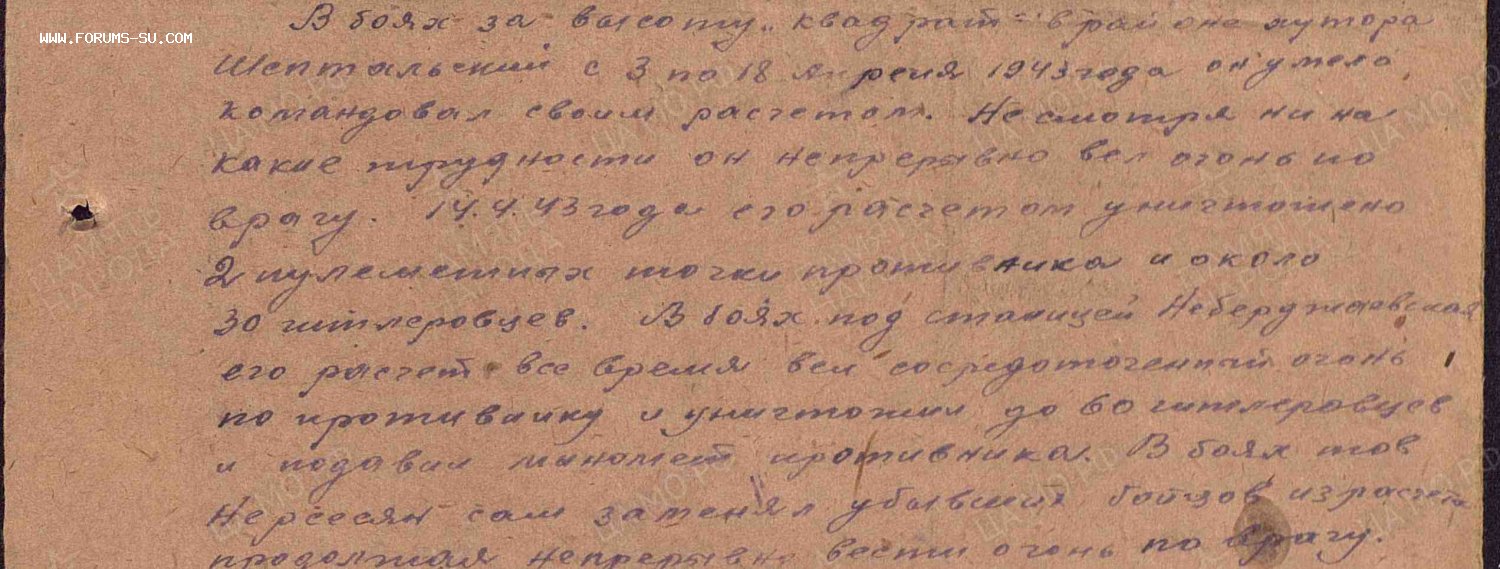 В боях за высоту „квадрат" в районе хутора
WWW.FORUMS-SU.COM
Шептальский с 3 по 18 апреля 1943 года он умело
командовал своим расчетом. Несмотря ни на
какие трудности он непрерывно вел огонь по
врагу. 14.4.43 года его расчетом уничтожено
2 пулеметных точки противника и около
30 гитлеровцев. В боях под станицей Неберджаевская
его расчет все время вел сосредоточенный огонь
по противнику и уничтожил до 60 гитлеровцев
и подавил миномет противника. В боях тов
Нерсесян сам заменял убывших бойцов из расчета
продолжая непрерывно вести огонь по врагу.
ПАМЯТЬ НАРОДА
ЦА МО РФ